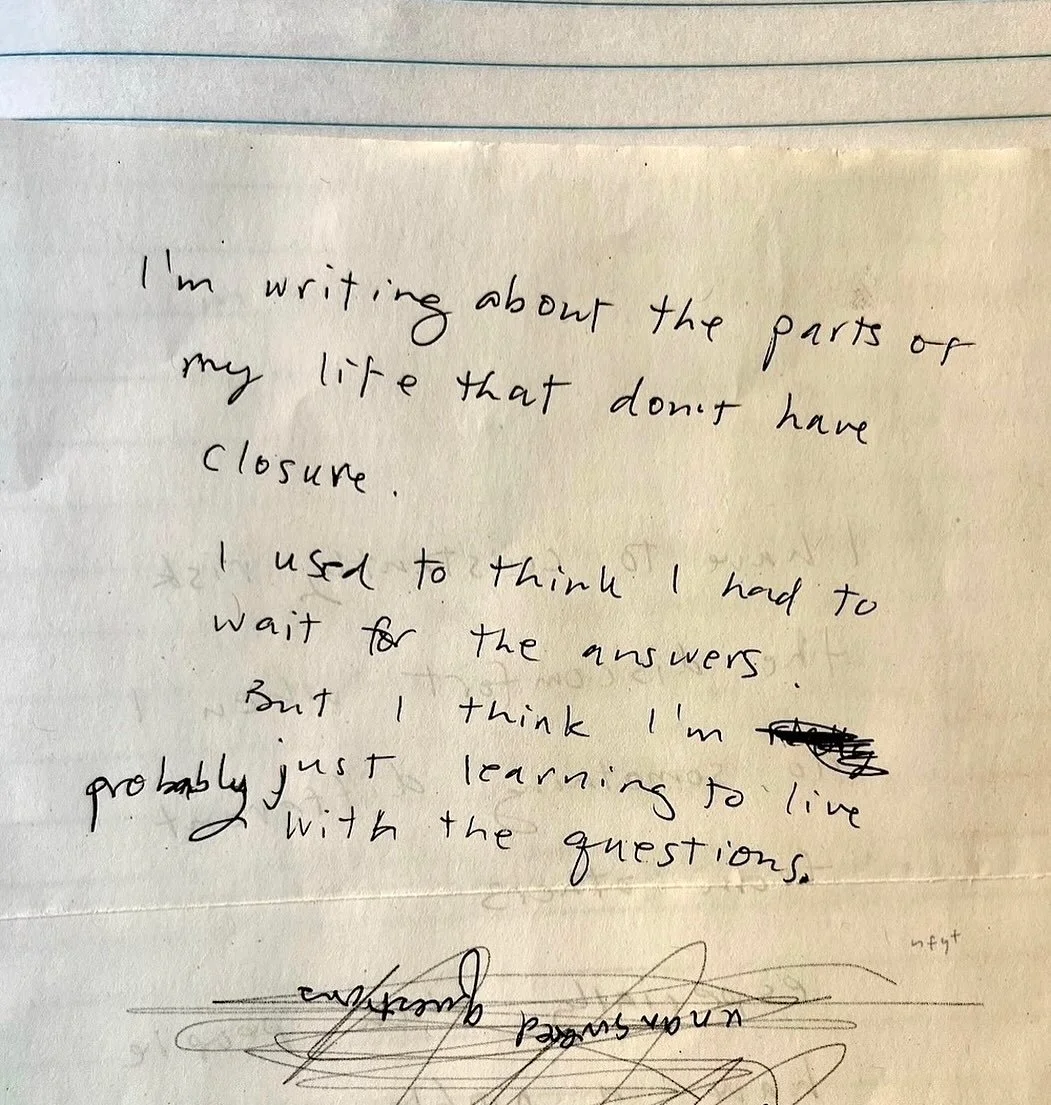 I'm writing about the parts of
my life that don't have
closure.
I used to think I had to
wait for the answers.
But I think I'm
probably just learning to live
with the questions.
nfyt
unanswered questions